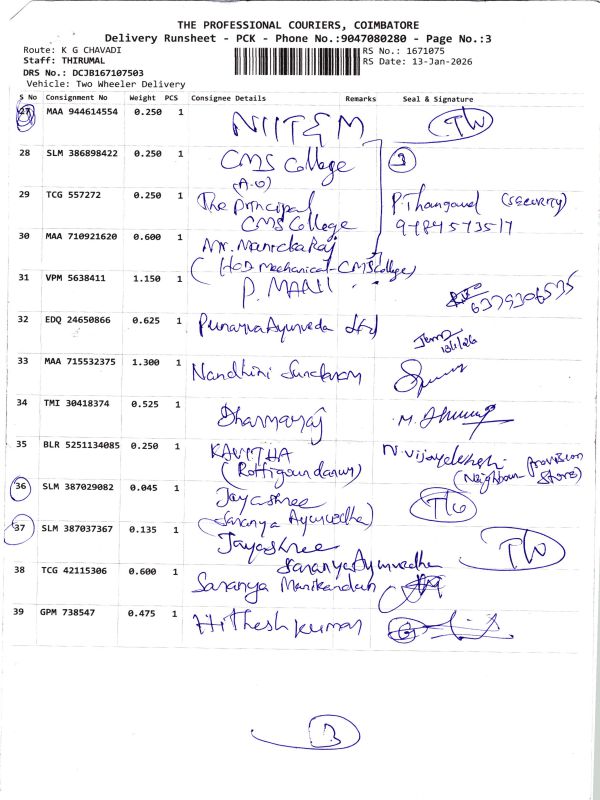 THE PROFESSIONAL COURIERS, COIMBATORE
Delivery Runsheet - PCK - Phone No.:9047080280 - Page No.:3
Route: K G CHAVADI
RS No.: 1671075
Staff: THIRUMAL
RS Date: 13-Jan-2026
DRS No.: DCJB167107503
Vehicle: Two Wheeler Delivery
S No Consignment No Weight PCS Consignee Details Remarks Seal & Signature
27 MAA 944614554 0.250 1 NIITEM TW
28 SLM 386898422 0.250 1 CMS College 3
(A.O)
29 TCG 557272 0.250 1 The Principal P. Thangavel (SECURITY)
CMS College 9484573517
30 MAA 710921620 0.600 1 Mr. Manickaraj
(HOD Mechanical - CMS College)
31 VPM 5638411 1.150 1 P. MANI 6379306535
32 EDQ 24650866 0.625 1 Punarva Ayurveda
13/1/26
33 MAA 715532375 1.300 1 Nandhini Sundaram
34 TMI 30418374 0.525 1 Dharmaraj
35 BLR 5251134085 0.250 1 KAVITHA
(Neighbour Provision Store)
36 SLM 387029082 0.045 1 Jayashree
(Saranya Ayurvedha)
37 SLM 387037367 0.135 1 Jayashree TW
Saranya Ayurvedha
38 TCG 42115306 0.600 1 Saranya Manikandan
39 GPM 738547 0.475 1 Hithesh kumar
3